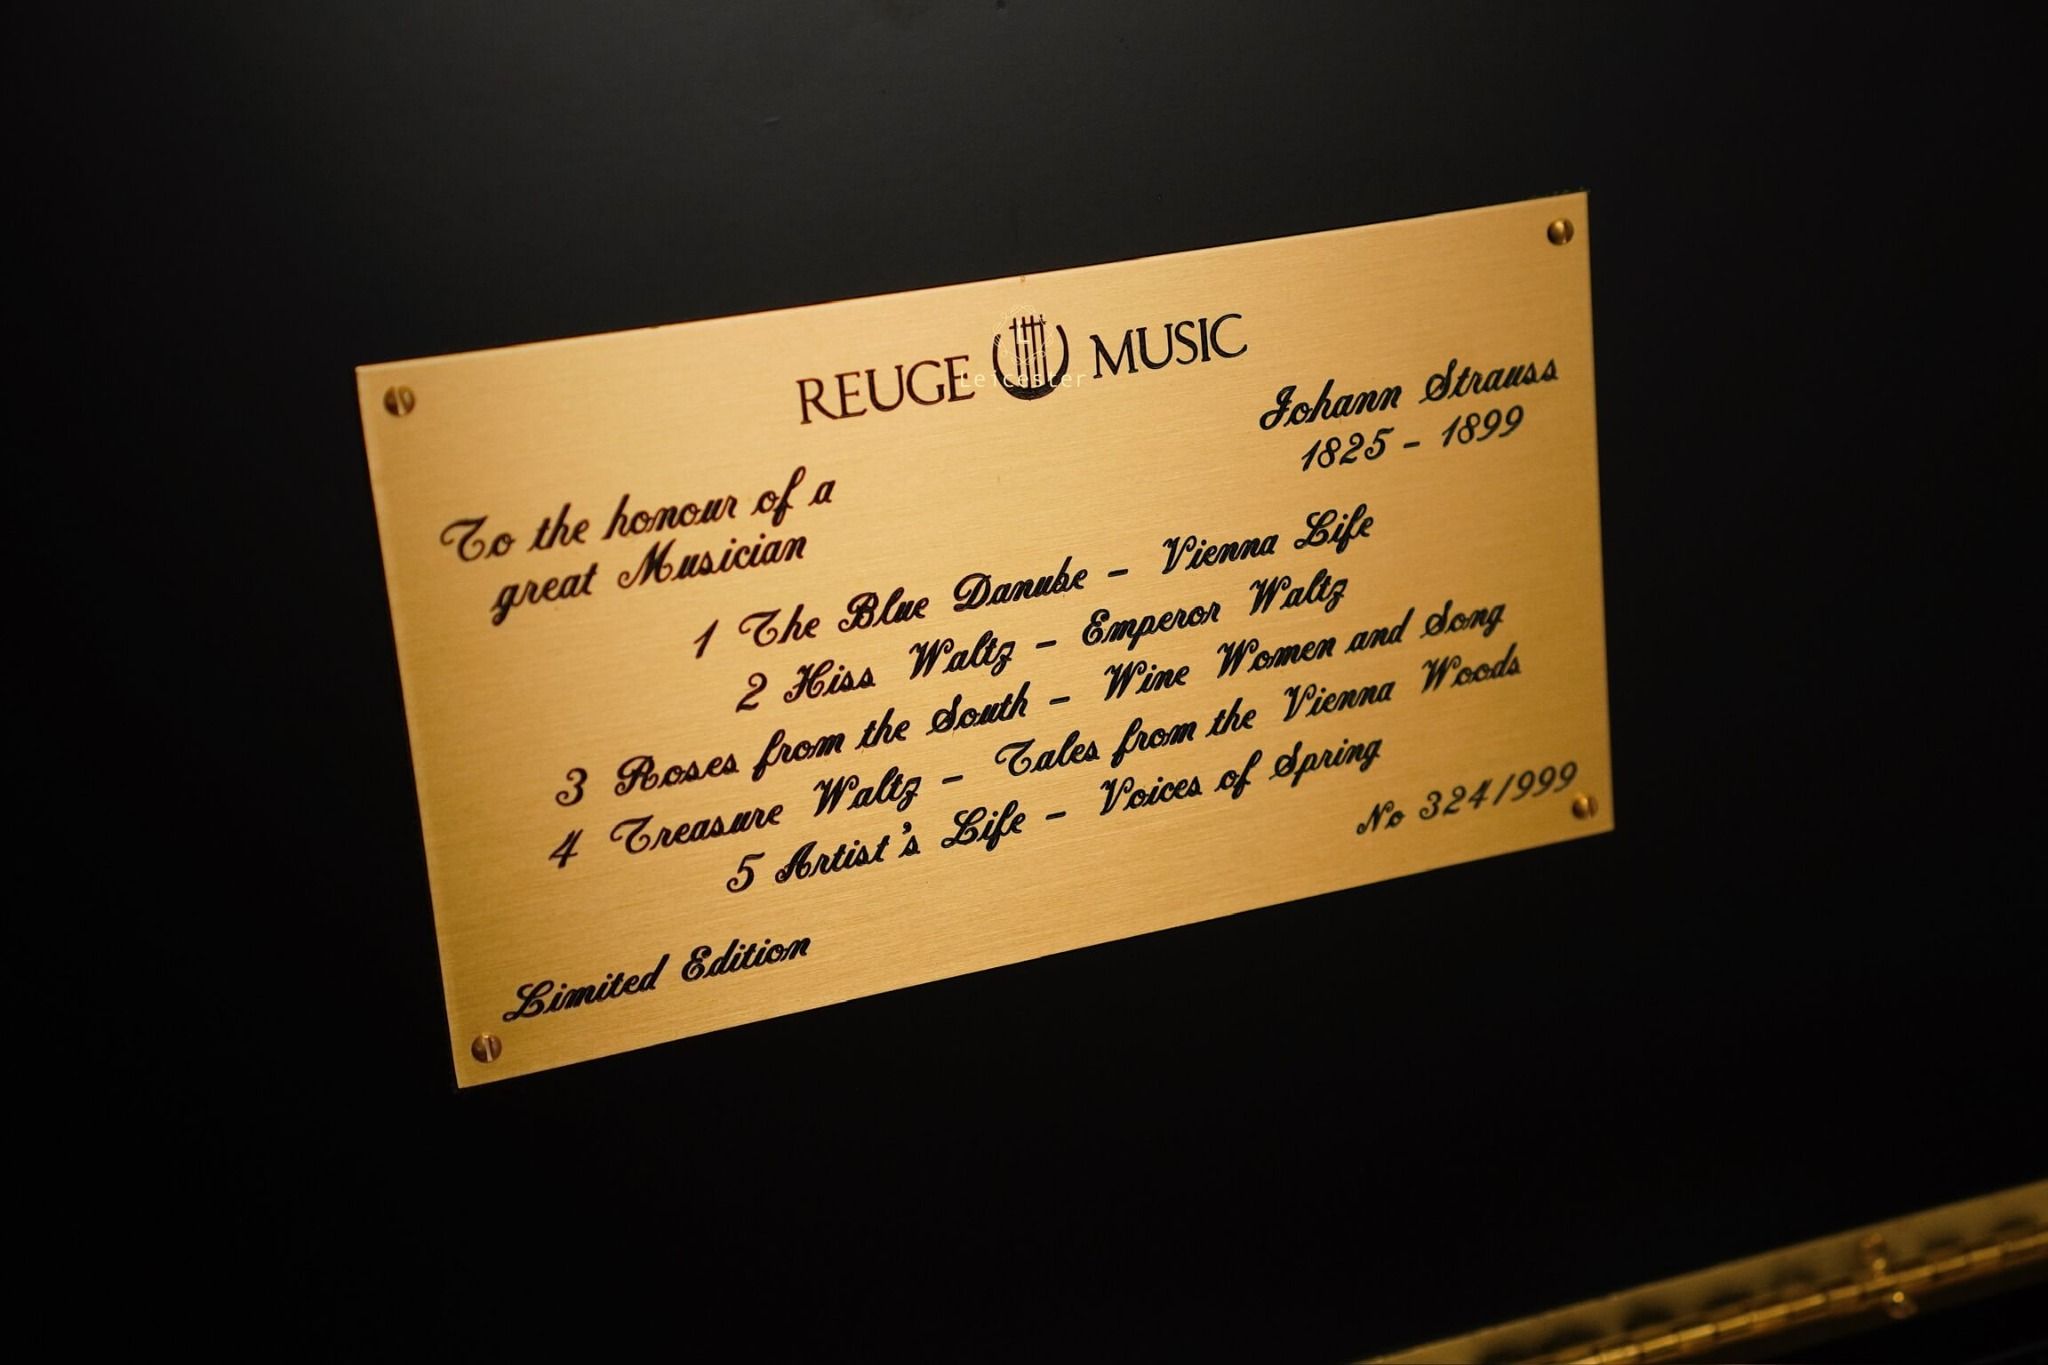 REUGE MUSIC
Leicester
Johann Strauss
1825 - 1899
To the honour of a
great Musician
1 The Blue Danube - Vienna Life
2 Kiss Waltz - Emperor Waltz
3 Roses from the South - Wine Women and Song
4 Treasure Waltz - Tales from the Vienna Woods
5 Artist's Life - Voices of Spring
No 324/999
Limited Edition